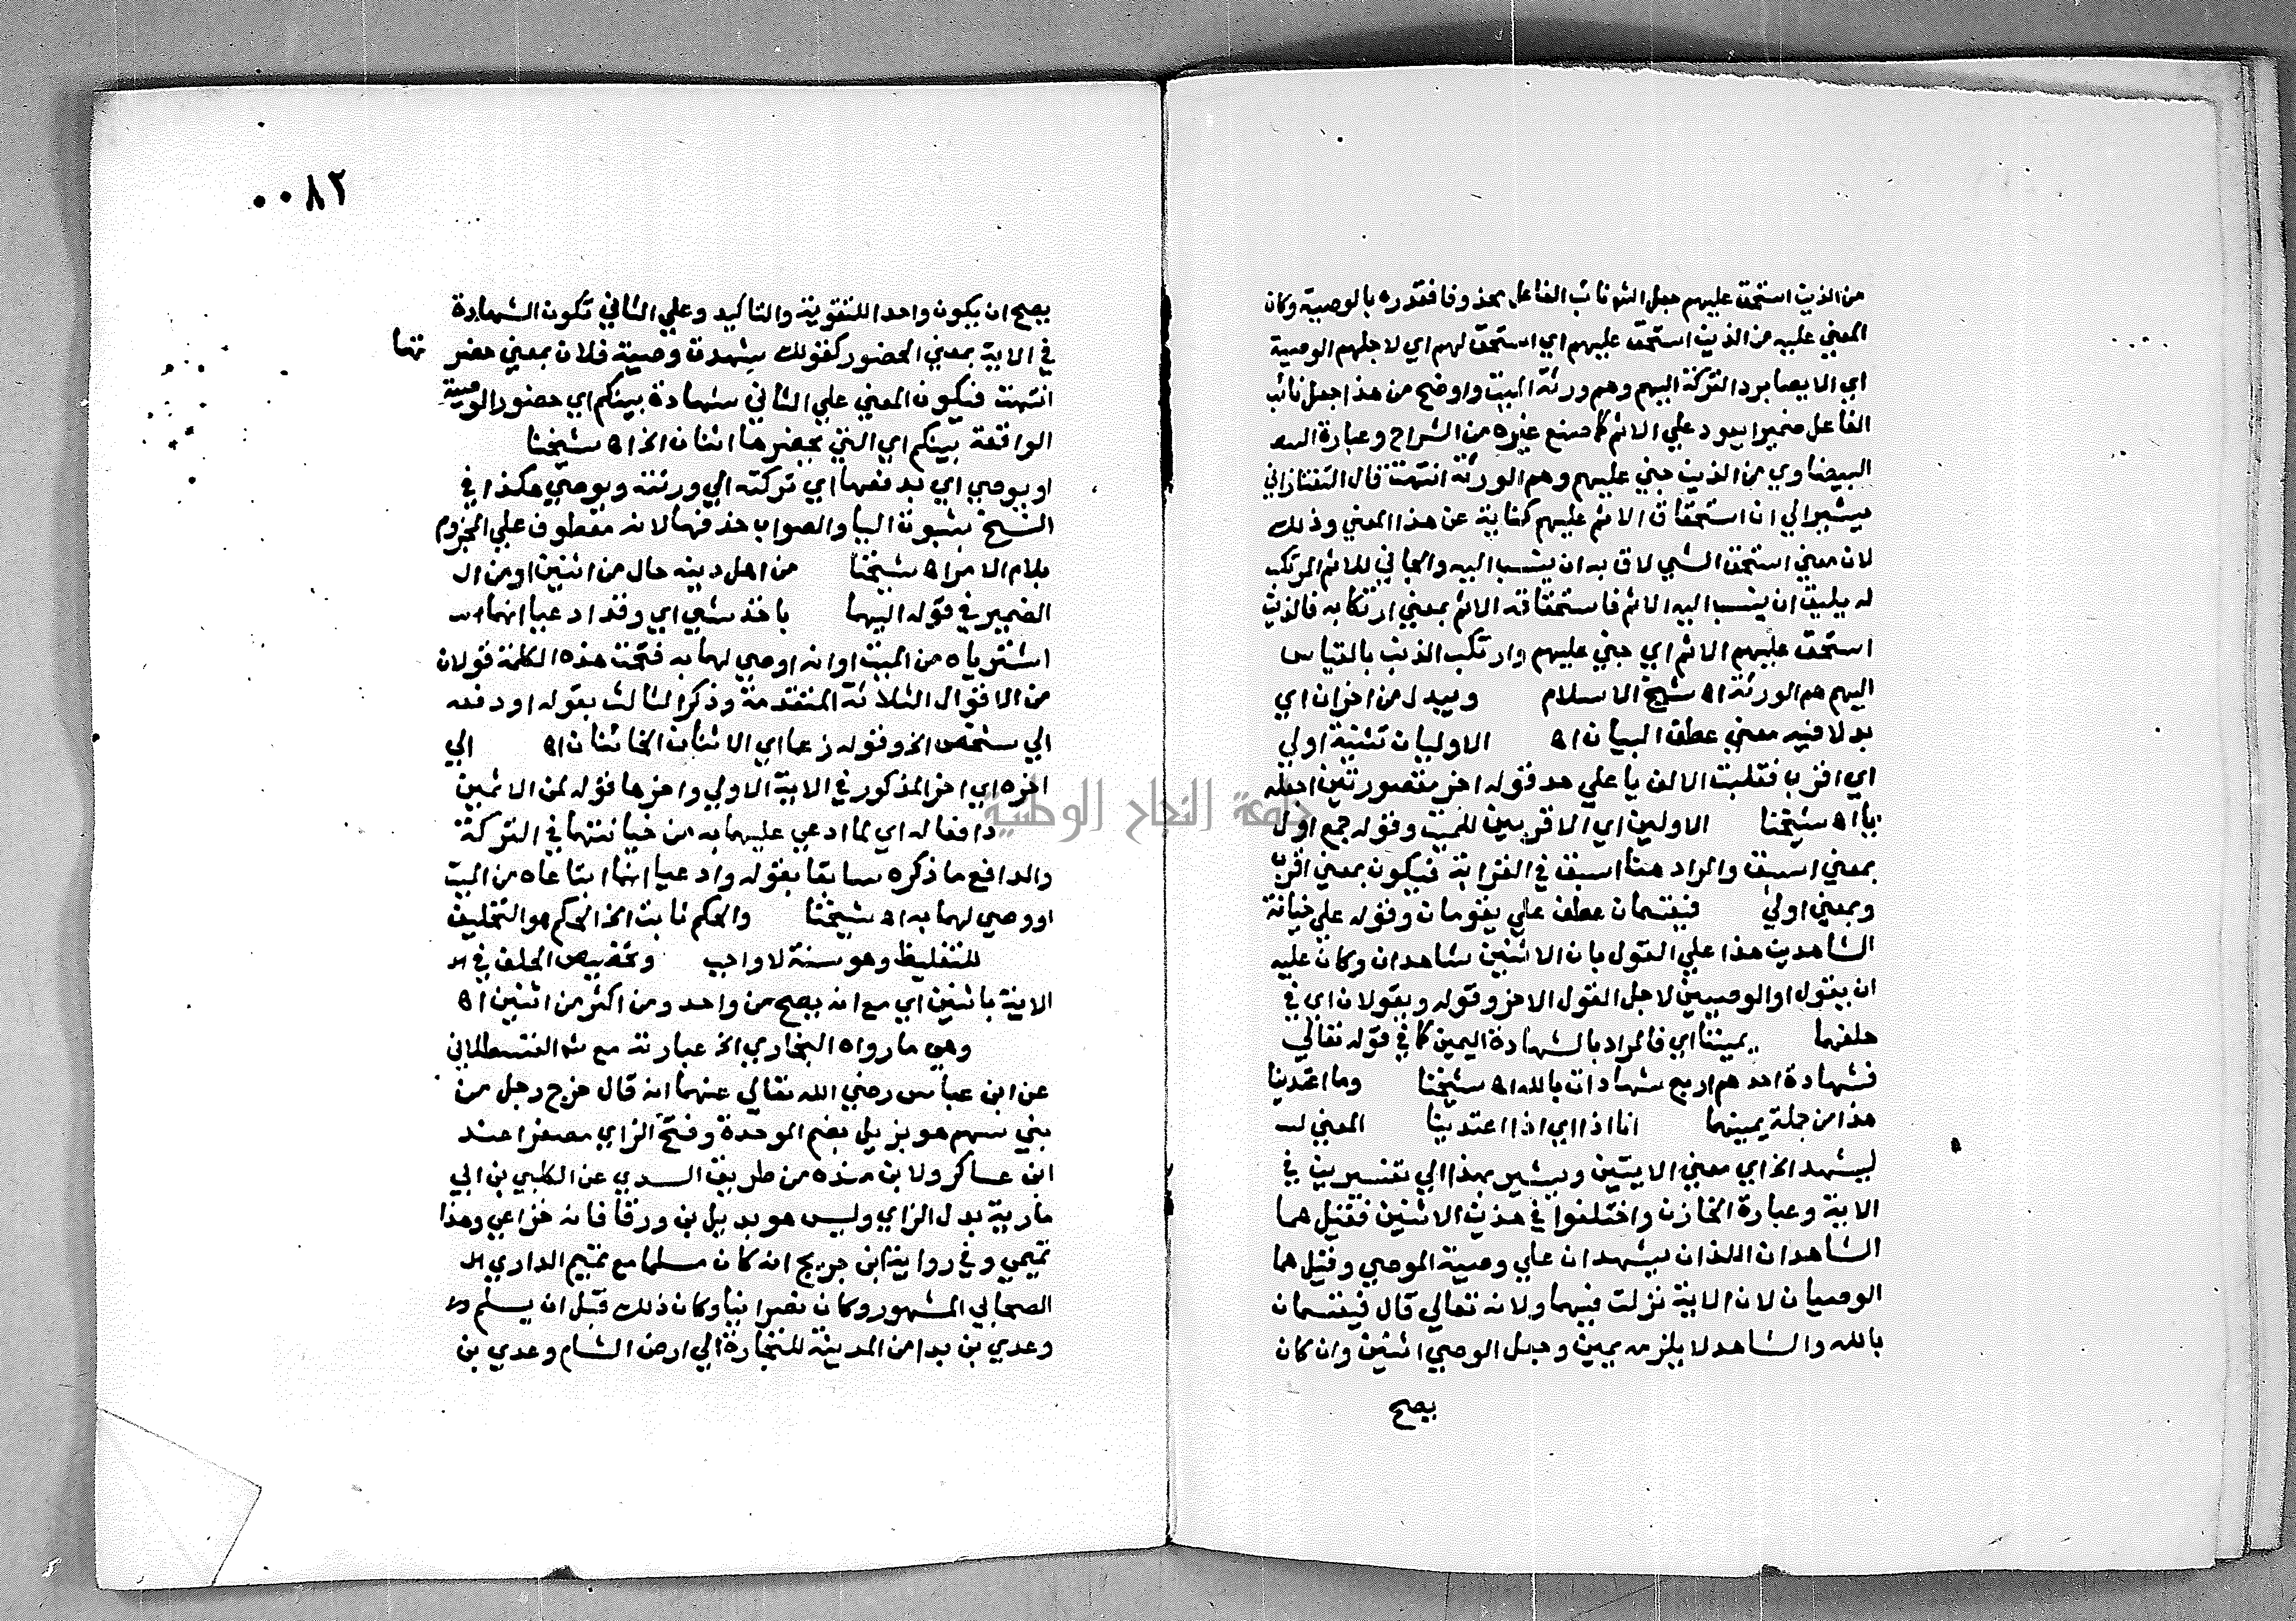 من الذين استحق عليهم جعل الشه نائب الفاعل محذوفا فقدره بالوصية وكان
المعني عليه من الذين استحق عليهم اي استحق لهم اي لاجلهم الوصية
اي الايصا برد التركة اليهم وهم ورثة الميت واوضح من هذا جعل نائب
الفاعل ضميرا يعود علي الاثم كما صنع غيره من الشراح وعبارة
البيضاوي من الذين جني عليهم وهم الورثة انتهت قال التفتازاني
يشير الي ان استحقاق الاثم عليهم كناية عن هذا المعني وذلك
لان معني استحق الشي لاق به ان ينسب اليه والجاني للاثم المرتكب
له يليق ان ينسب اليه الاثم فاستحقاقه الاثم بمعني ارتكابه فالذين
استحق عليهم الاثم اي جني عليهم وارتكب الذنب بالقياس
اليهم هم الورثة اه شيخ الاسلام ويبدل من اخران اي
بدلا فيه معني عطف البيان اه الاوليان تثنية اولي
اي اقرب فقلبت الالف يا علي حد قوله اخر مقصور تثني اجعله
يا اه شيخنا الاولين اي الاقربين للميت وقوله جمع اول
بمعني اسبق والمراد هنا اسبق في القرابة فيكون بمعني اقرب
وبمعني اولي فيقسمان عطف علي يقومان وقوله علي خيانة
الشاهدين هذا علي القول بان الاثنين شاهدان وكان عليه
ان يقول او الوصيين لاجل القول الاخر وقوله ويقولان اي في
حلفهما يميننا اي فالمراد بالشهادة اليمين كما في قوله تعالي
فشهادة احدهم اربع شهادات بالله اه شيخنا وما اعتدينا
هذا من جملة يمينهما انا اذا اي اذا اعتدينا المعني
ليشهد الخ اي معني الايتين ويشير بهذا الي تفسيرين في
الاية وعبارة الخازن واختلفوا في هذين الاثنين فقيل هما
الشاهدان اللذان يشهدان علي وصية الموصي وقيل هما
الوصيان لان الاية نزلت فيهما ولانه تعالي قال فيقسمان
بالله والشاهد لا يلزمه يمين وجعل الوصي اثنين وان كان
يصح
٠٠٨٢
يصح ان يكون واحدا للتقوية والتاكيد وعلي الثاني تكون الشهادة
في الاية بمعني الحضور كقولك شهدت وصية فلان بمعني حضرتها
انتهت فيكون المعني علي الثاني شهادة بينكم اي حضور الوصية
الواقعة بينكم اي التي يحضرها اثنان الخ اه شيخنا
او يوصي اي بدفعها اي تركته الي ورثته ويوصي هكذا في
النسخ بثبوت اليا والصواب حذفها لانه معطوف علي المجزوم
بلام الامر اه شيخنا من اهل دينه حال من اثنين او من ال
الضمير في قوله اليهما باخذ شي اي وقد ادعيا انهما
اشترياه من الميت او انه اوصي لهما به فتحت هذه الكلمة قولان
من الاقوال الثلاثة المتقدمة وذكر الثالث بقوله او دفعه
الي شخص الخ وقوله زعما اي الاثنان الخائنان اه الي
اخره اي اخر المذكور في الاية الاولي واخرها قوله لمن الاثمين
دافعا له اي لما ادعي عليهما به من خيانتهما في التركة
والدافع ما ذكره سابقا بقوله وادعيا انهما ابتاعاه من الميت
او وصي لهما به اه شيخنا والحكم ثابت الخ الحكم هو التحليف
للتغليظ وهو سنة لا واجب وتخصيص الحلف في
الاية باثنين اي مع انه يصح من واحد ومن اكثر من اثنين اه
وهي ما رواه البخاري الخ عبارته مع شه القسطلاني
عن ابن عباس رضي الله تعالي عنهما انه قال خرج رجل من
بني سهم هو بزيل بضم الموحدة وفتح الزاي مصغرا عند
ابن عساكر ولابن منده من طريق السدي عن الكلبي بن ابي
مارية بدل الزاي وليس هو بديل بن ورقا فانه خزاعي وهذا
تميمي وفي رواية ابن جريج انه كان مسلما مع تميم الداري
الصحابي المشهور وكان نصرانيا وكان ذلك قبل ان يسلم
وعدي بن بدا من المدينة للتجارة الي ارض الشام وعدي بن
جامعة النجاح الوطنية